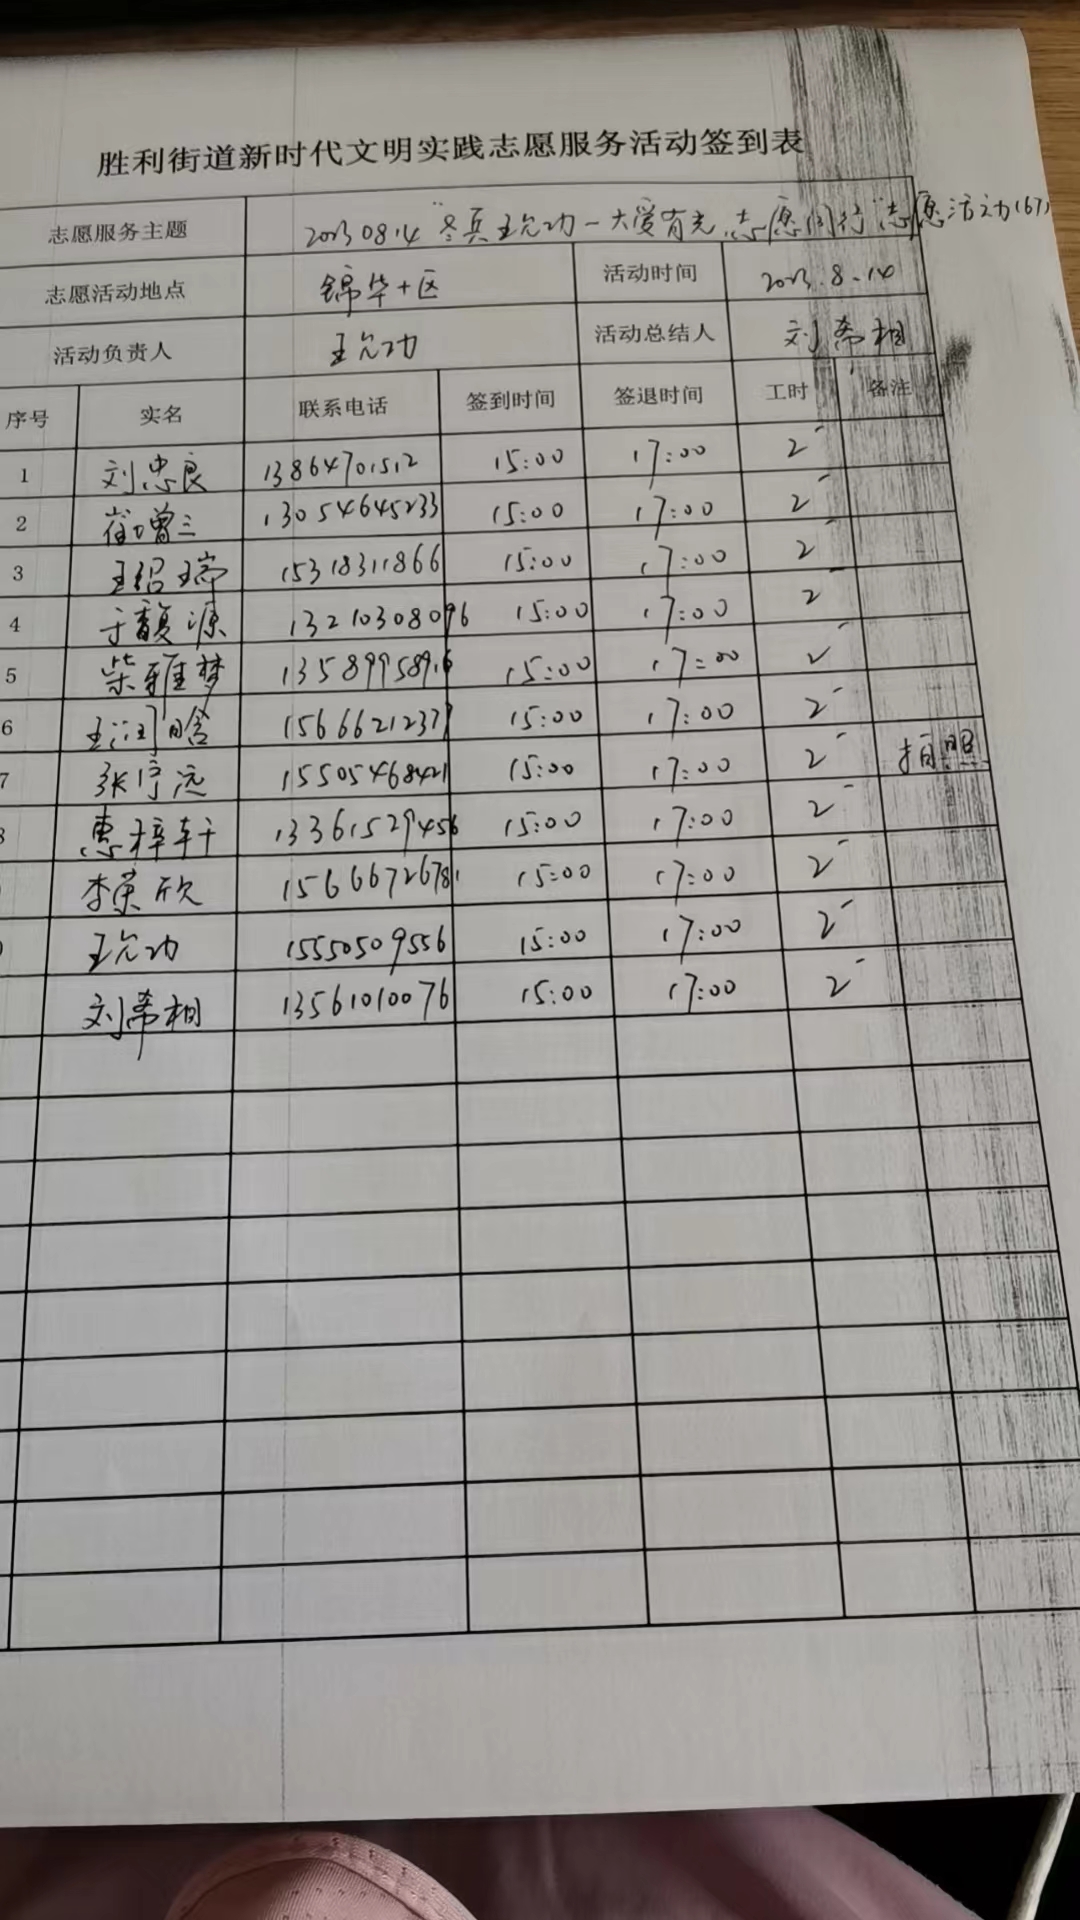 胜利街道新时代文明实践志愿服务活动签到表
志愿服务主题 20230814"老兵王允功一大爱有光 志愿同行"志愿活动(67)
志愿活动地点 锦华十区 活动时间 2023.8.14
活动负责人 王允功 活动总结人 刘希相
序号 实名 联系电话 签到时间 签退时间 工时 备注
1 刘忠良 13864701512 15:00 17:00 2
2 崔增三 13054645233 15:00 17:00 2
3 王绍瑞 15318311866 15:00 17:00 2
4 于馥源 13210308096 15:00 17:00 2
5 柴雅梦 13589958916 15:00 17:00 2
6 王润晗 15666212379 15:00 17:00 2
7 张宁远 15505468421 15:00 17:00 2 拍照
8 惠梓轩 13361529456 15:00 17:00 2
李荣欣 15666726781 15:00 17:00 2
王允功 15550509556 15:00 17:00 2
刘希相 13561010076 15:00 17:00 2